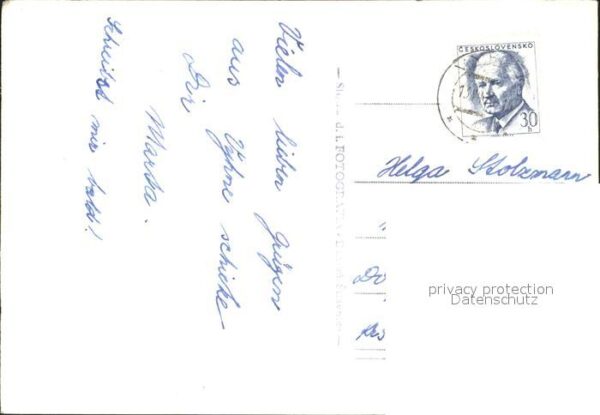 Vielen lieben Grüßen
aus Vyhne schicke
Dir
Marta.
Schreibst mir bald!
FOTOGRAFIA
ČESKOSLOVENSKO
30
h
Helga Stolzmann
Do
privacy protection
Datenschutz